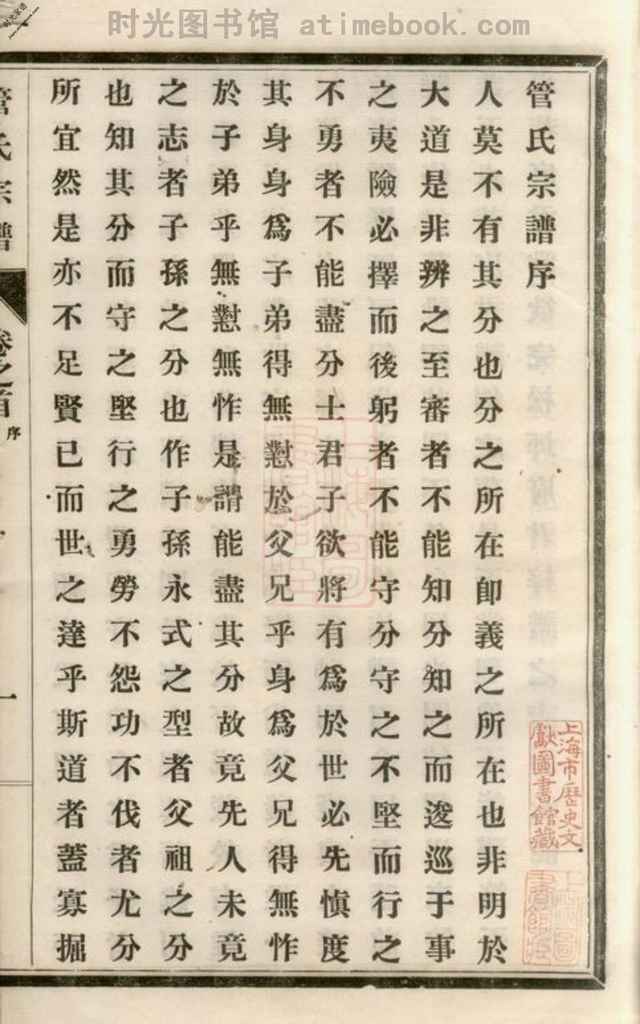 时光图书馆 atimebook.com
管氏宗譜序
人莫不有其分也分之所在卽義之所在也非明於
大道是非辨之至審者不能知分知之而逡巡于事
之夷險必擇而後躬者不能守分守之不堅而行之
不勇者不能盡分士君子欲將有爲於世必先愼度
其身身爲子弟得無懟於父兄乎身爲父兄得無怍
於子弟乎無懟無怍是謂能盡其分故竟先人未竟
之志者子孫之分也作子孫永式之型者父祖之分
也知其分而守之堅行之勇勞不怨功不伐者尤分
所宜然是亦不足賢已而世之達乎斯道者蓋寡掘
管氏宗譜
卷之首
序
一
上海市歷史文
獻圖書館藏